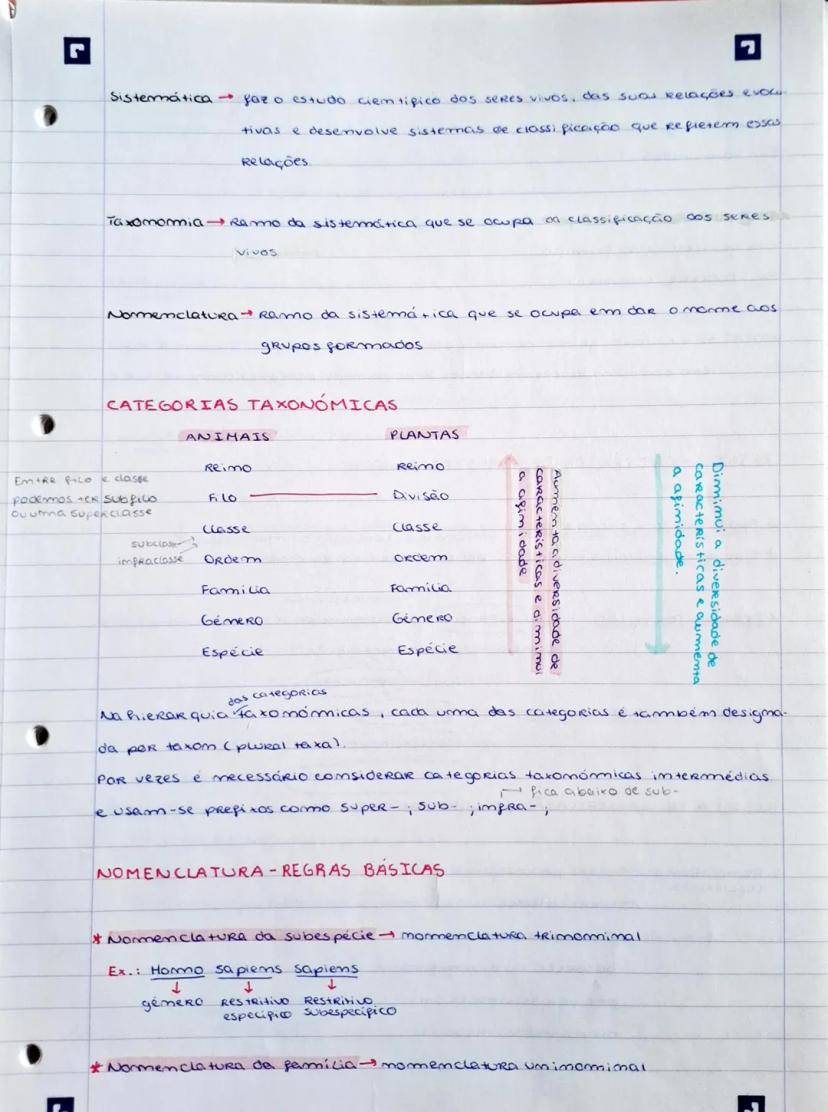 Sistemática → faz o estudo científico dos seres vivos, das suas relações evolu-
tivas e desenvolve sistemas de classificação que refletem essas
relações.
Taxonomia → Ramo da sistemática que se ocupa da classificação dos seres
vivos
Nomenclatura → Ramo da sistemática que se ocupa em dar o nome aos
grupos formados
CATEGORIAS TAXONÓMICAS
ANIMAIS PLANTAS
Reino Reino
Filo Divisão
Classe Classe
Ordem Ordem
Família Família
Género Género
Espécie Espécie
Entre filo e classe
podemos ter subfilo
ou uma superclasse
subclasse
infraclasse
Aumenta a diversidade de
características e diminui
a afinidade
Diminui a diversidade de
características e aumenta
a afinidade.
das categorias
Na hierarquia taxonómicas, cada uma das categorias é também designa-
da por taxon (plural taxa).
Por vezes é necessário considerar categorias taxonómicas intermédias
→ fica abaixo de sub-
e usam-se prefixos como super-; sub-; infra-;
NOMENCLATURA - REGRAS BÁSICAS
* Nomenclatura da subespécie → nomenclatura trinominal
Ex.: Homo sapiens sapiens
↓ ↓ ↓
género restritivo restritivo
específico subespecífico
* Nomenclatura da família → nomenclatura uninominal